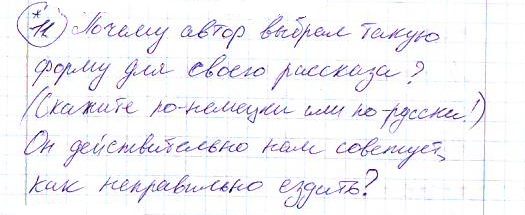 *11 Почему автор выбрал такую
форму для своего рассказа?
(Скажите по-немецки или по-русски!)
Он действительно нам советует,
как неправильно ездить?